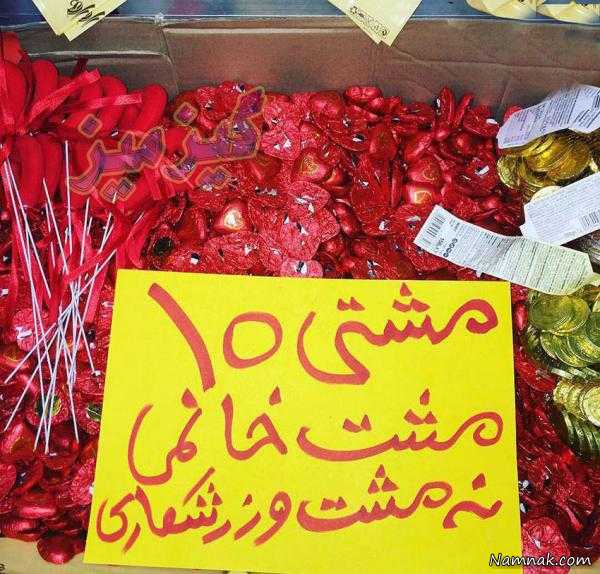 گیزمیز
مشتی ۱۵
مشت خانمی
نه مشت ورزشکاری
Namnak.com